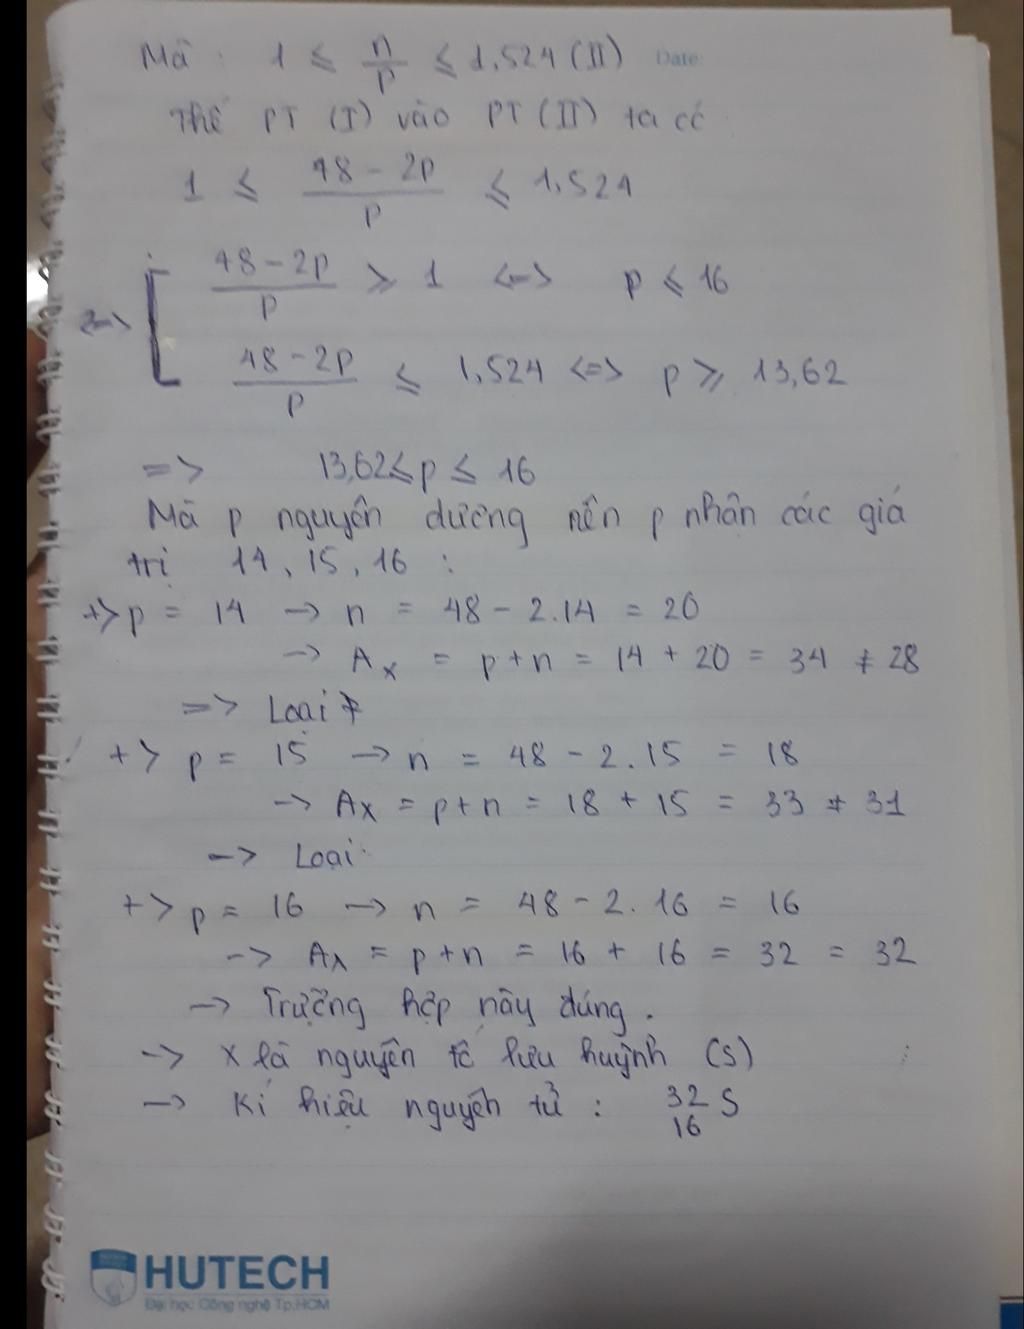 Mà : 1 ≤ n/p ≤ 1,524 (II) Date:
Thế PT (I) vào PT (II) ta có
1 ≤ (48 - 2p)/p ≤ 1,524
(48 - 2p)/p ≥ 1 <=> p ≤ 16
<=> [
(48 - 2p)/p ≤ 1,524 <=> p ≥ 13,62
=> 13,62 ≤ p ≤ 16
Mà p nguyên dương nên p nhận các giá
trị 14, 15, 16 :
+> p = 14 -> n = 48 - 2.14 = 20
-> Ax = p + n = 14 + 20 = 34 ≠ 28
=> Loại
+> p = 15 -> n = 48 - 2.15 = 18
-> Ax = p + n = 18 + 15 = 33 ≠ 31
-> Loại
+> p = 16 -> n = 48 - 2.16 = 16
-> Ax = p + n = 16 + 16 = 32 = 32
-> Trường hợp này đúng.
-> X là nguyên tố lưu huỳnh (S)
-> Kí hiệu nguyên tử : 32 S
16
HUTECH
Đại học Công nghệ Tp.HCM